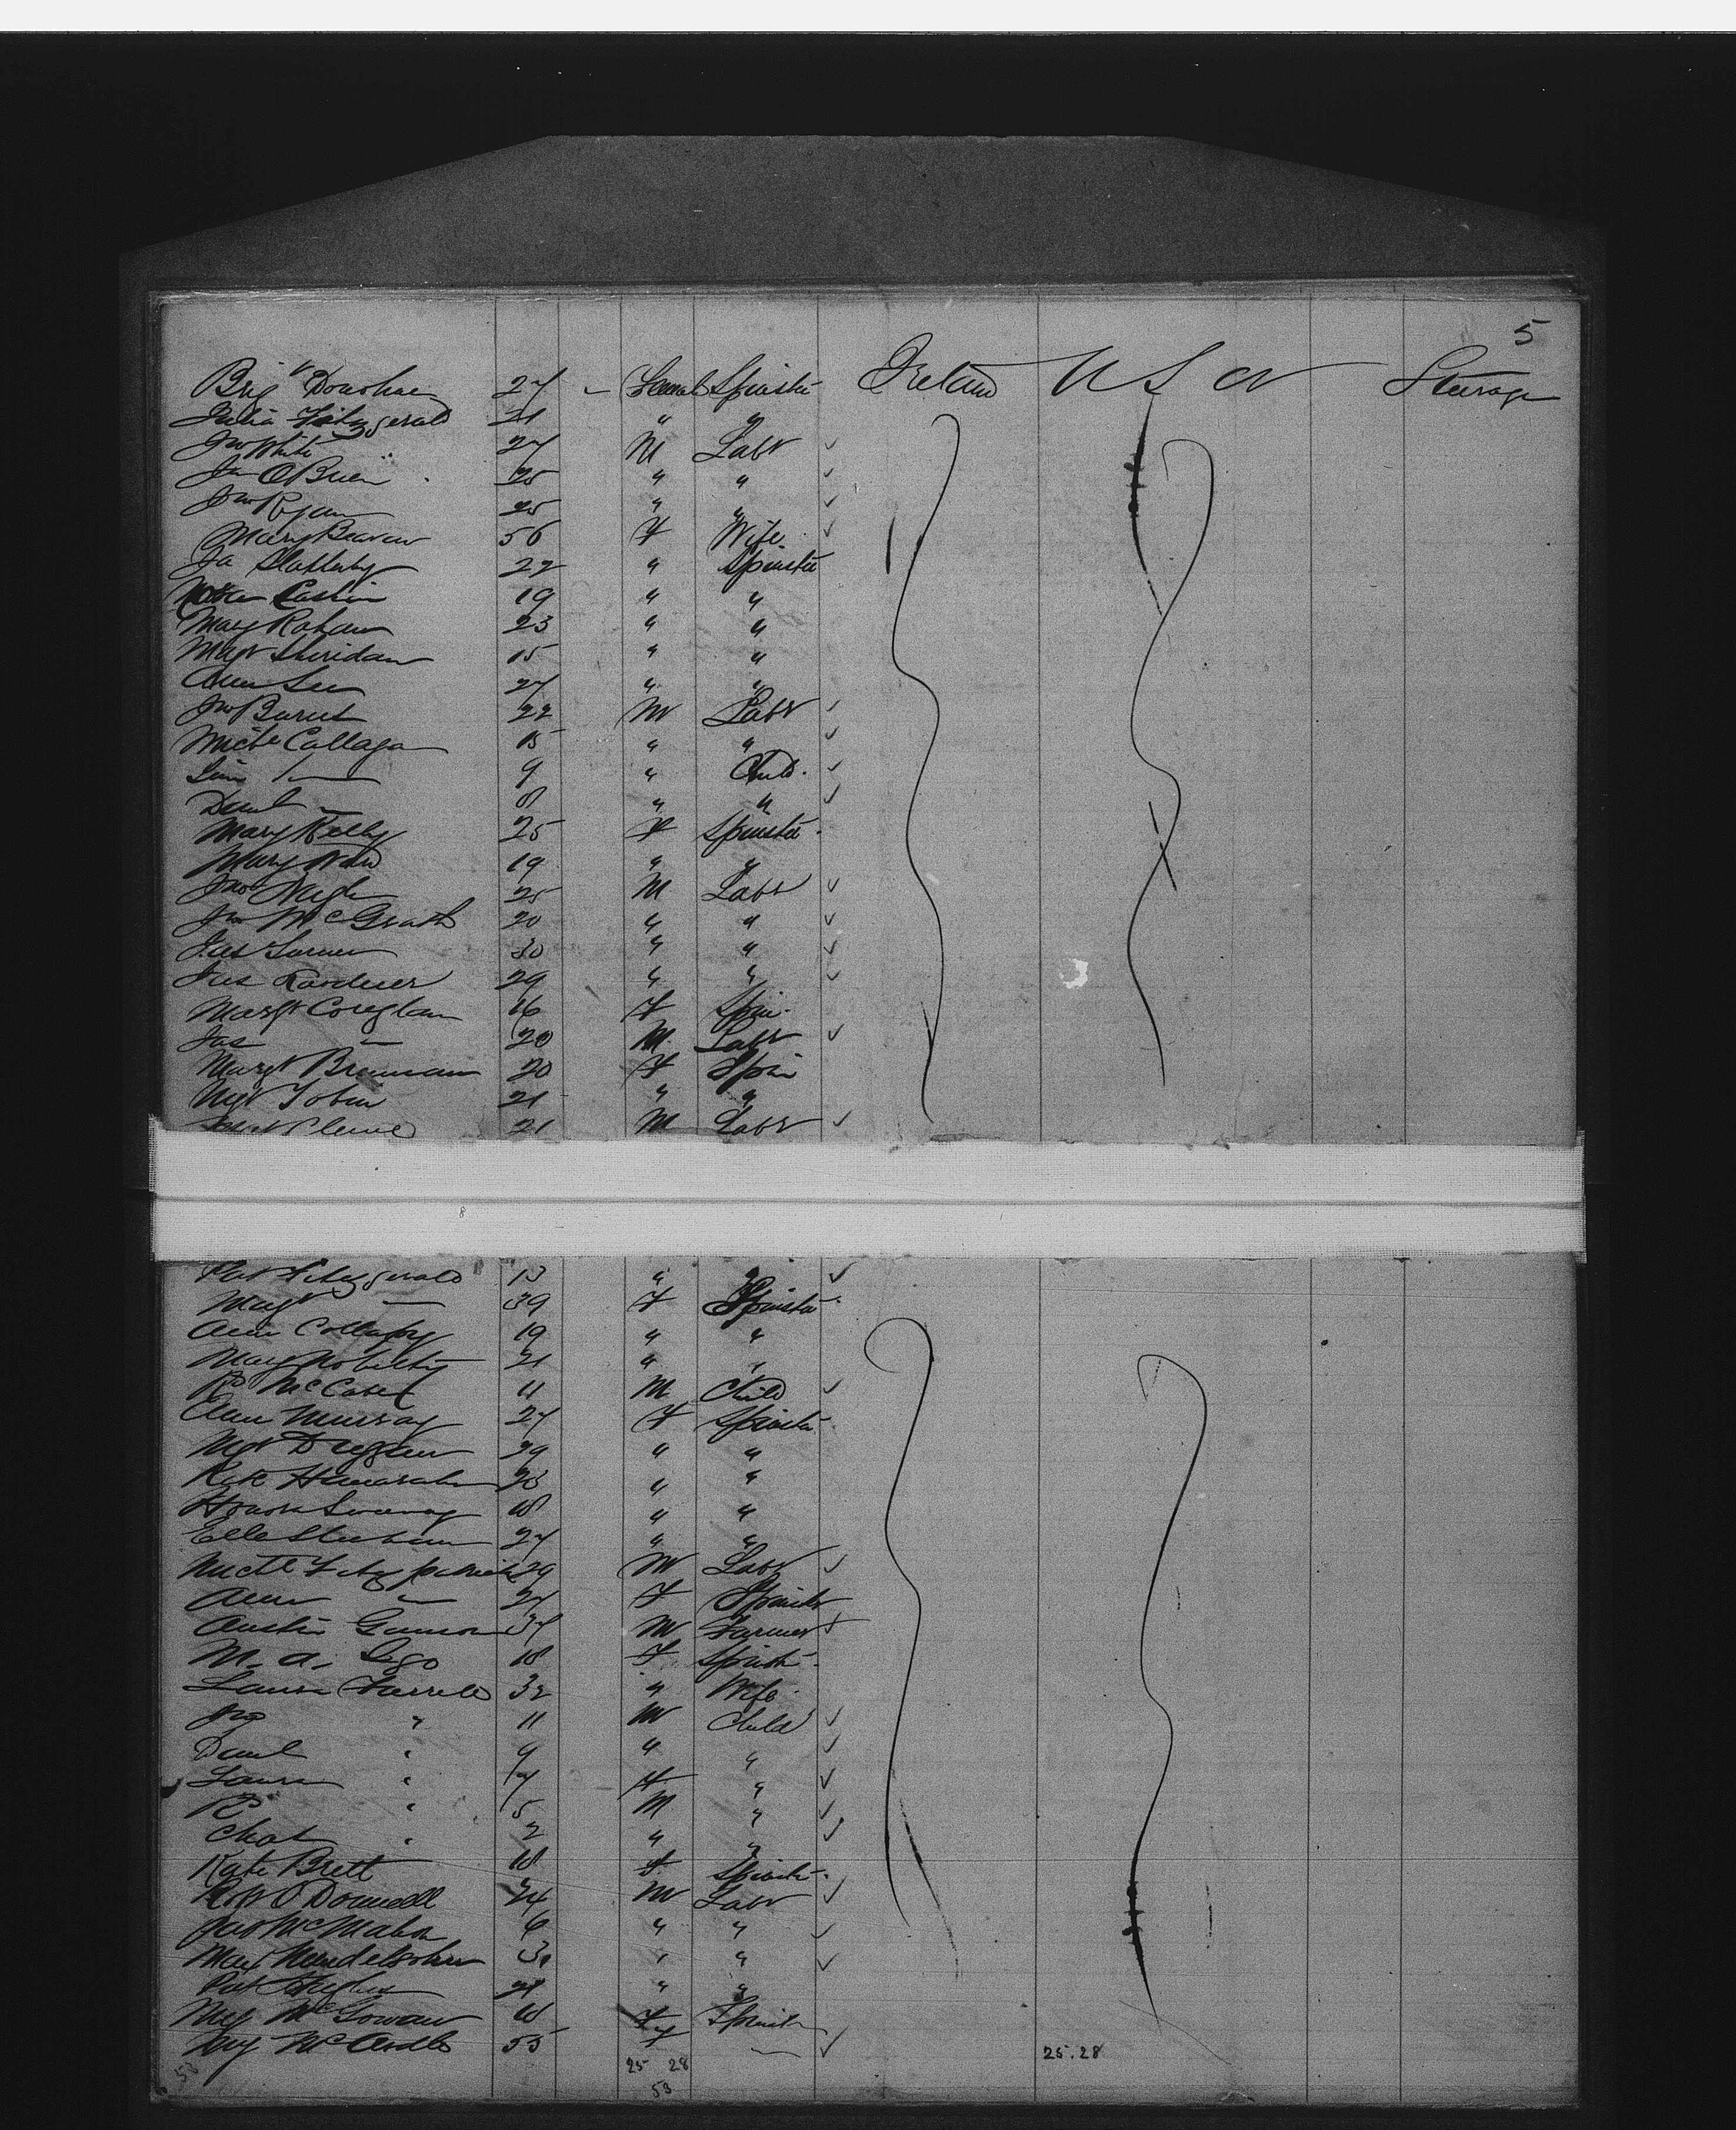 5
Brigt Donohue 27 Female Spinster Ireland U S A Steerage
Julia Fitzgerald 21 " "
Jno White 27 M Labr
Jno O'Brien 25 " "
Jno Ryan 25 " "
Mary Beavan 56 F Wife
Ja Slatterly 22 " Spinster
19 " "
Mary Rohan 23 " "
Magt Sheridan 15 " "
Ann Lee 27 " "
Jno Burns 22 M Labr
Michl Callagan 15 " "
9 " Child
Danl — 8 " "
Mary Kelly 25 F Spinster
Mary Ward 19 " "
Jno 25 M Labr
Jno McGrath 20 " "
Jas 30 " "
Jas Gardner 29 " "
Margt Coreglan 16 F Spin
Jas — 20 M Labr
Margt Brennan 20 F Spin
Mgt Tobin 21 " "
21 M Labr
8
Pat Fitzgerald 13 " "
Magt — 39 F Spinster
Ann 19 " "
Mary 21 " "
McCabe 11 M Child
Ann Murray 27 F Spinster
Mgt 29 " "
Kate Hanarahan 28 " "
Honora Sweeney 18 " "
Ellen Sheehan 27 " "
Michl Fitzpatrick 29 M Labr
Ann — 27 F Spinster
Austin 34 M Farmer
M. A. 18 F Spinster
Laura Farrell 32 " Wife
Jno " 11 M Child
Danl " 9 " "
Laura " 7 F "
R " 5 M "
Chas " 2 " "
Kate Brett 18 F Spinster
O'Donnell 24 M Labr
Jno McMahon 6 " "
Max Mendelsohn 31 " "
Pat Hughes 21 " "
Mgt McGowan 18 F Spinster
Mgt McArdle 55 F —
53 25 28 25.28
53